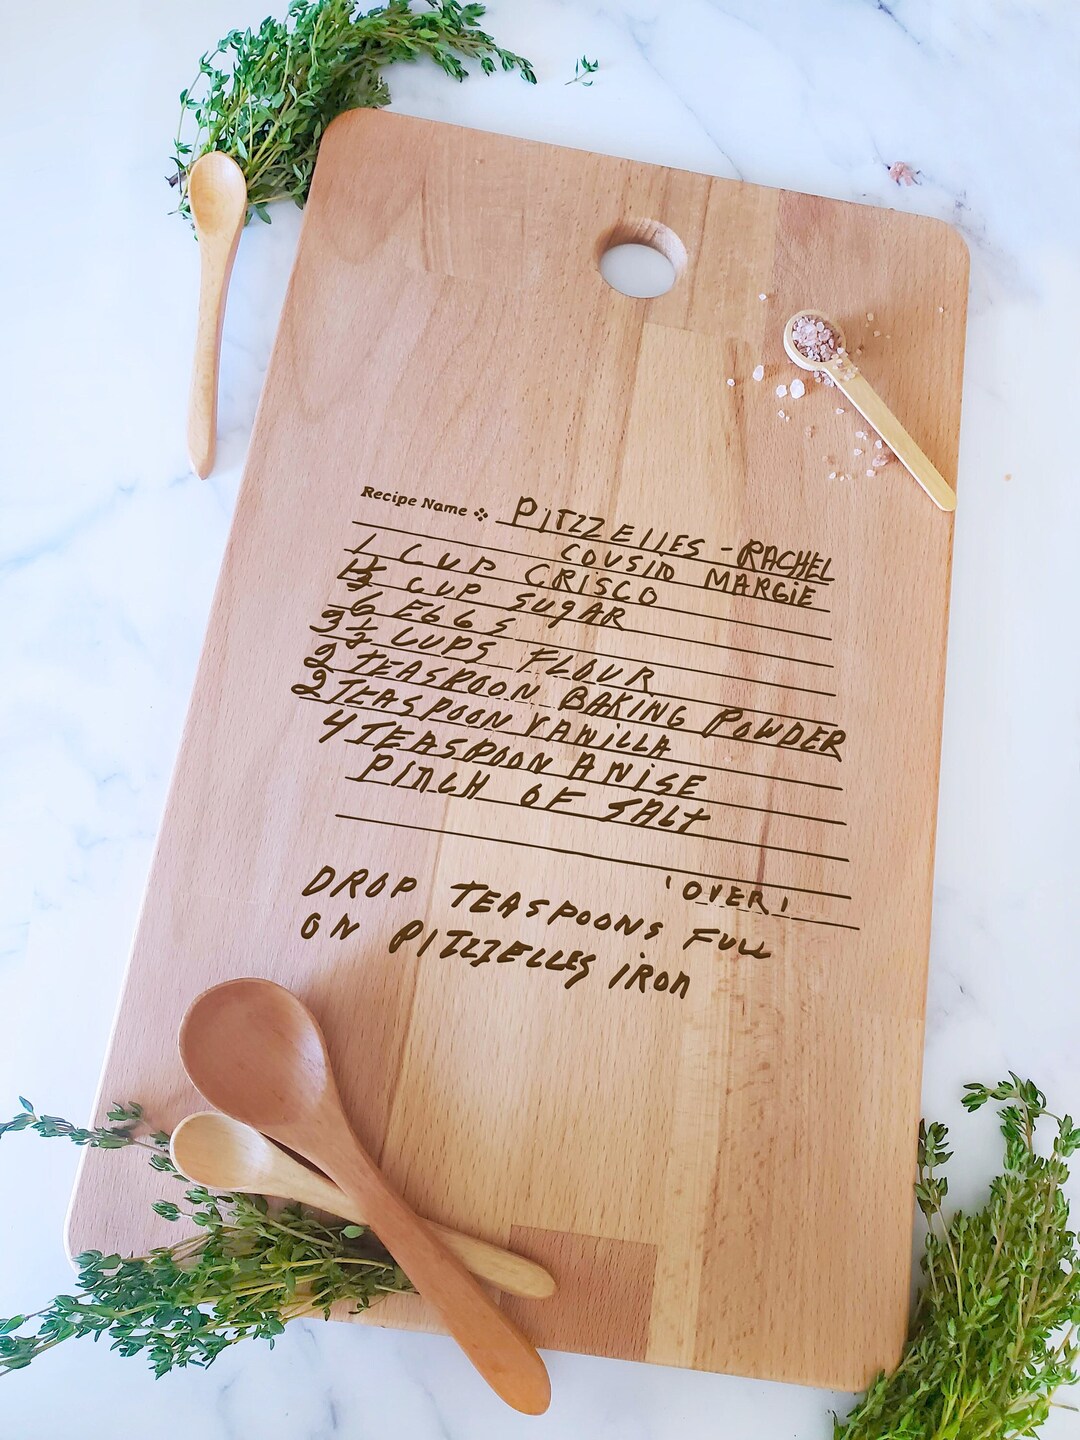 Recipe Name ❖ PITZZELLES - RACHEL
COUSIN MARGIE
1 CUP CRISCO
1 1/2 CUP SUGAR
6 EGGS
3 1/2 CUPS FLOUR
2 TEASPOON BAKING POWDER
2 TEASPOON VANILLA
4 TEASPOON ANISE
PINCH OF SALT
'OVER'
DROP TEASPOONS FULL
ON PITZZELLES IRON